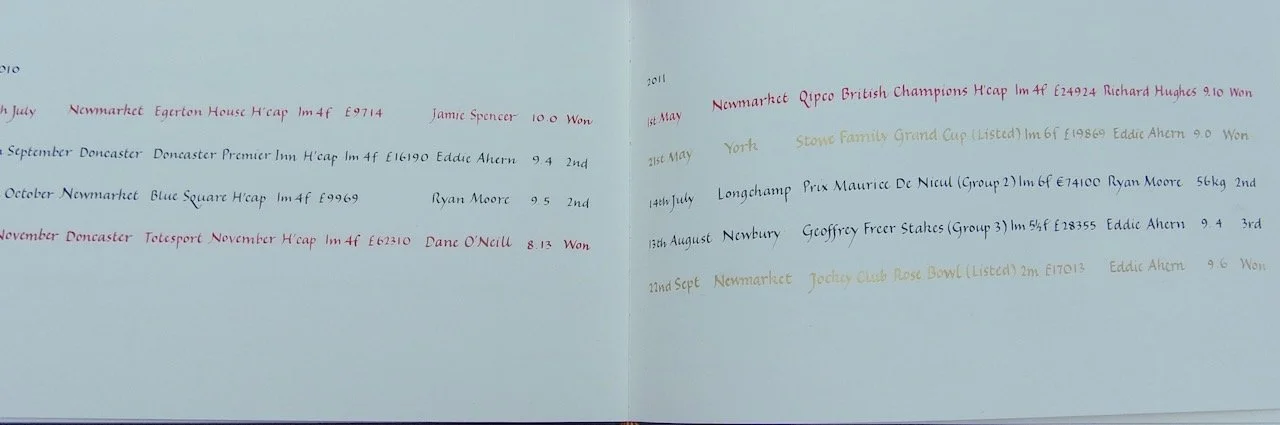 2010
h July Newmarket Egerton House H'cap 1m 4f £9714 Jamie Spencer 10.0 Won
September Doncaster Doncaster Premier Inn H'cap 1m 4f £16190 Eddie Ahern 9.4 2nd
October Newmarket Blue Square H'cap 1m 4f £9969 Ryan Moore 9.5 2nd
November Doncaster Totesport November H'cap 1m 4f £62310 Dane O'Neill 8.13 Won
2011
1st May Newmarket Qipco British Champions H'cap 1m 4f £24924 Richard Hughes 9.10 Won
21st May York Stowe Family Grand Cup (Listed) 1m 6f £19869 Eddie Ahern 9.0 Won
14th July Longchamp Prix Maurice De Nieul (Group 2) 1m 6f €74100 Ryan Moore 56kg 2nd
13th August Newbury Geoffrey Freer Stakes (Group 3) 1m 5½f £28355 Eddie Ahern 9.4 3rd
22nd Sept Newmarket Jockey Club Rose Bowl (Listed) 2m £17013 Eddie Ahern 9.6 Won